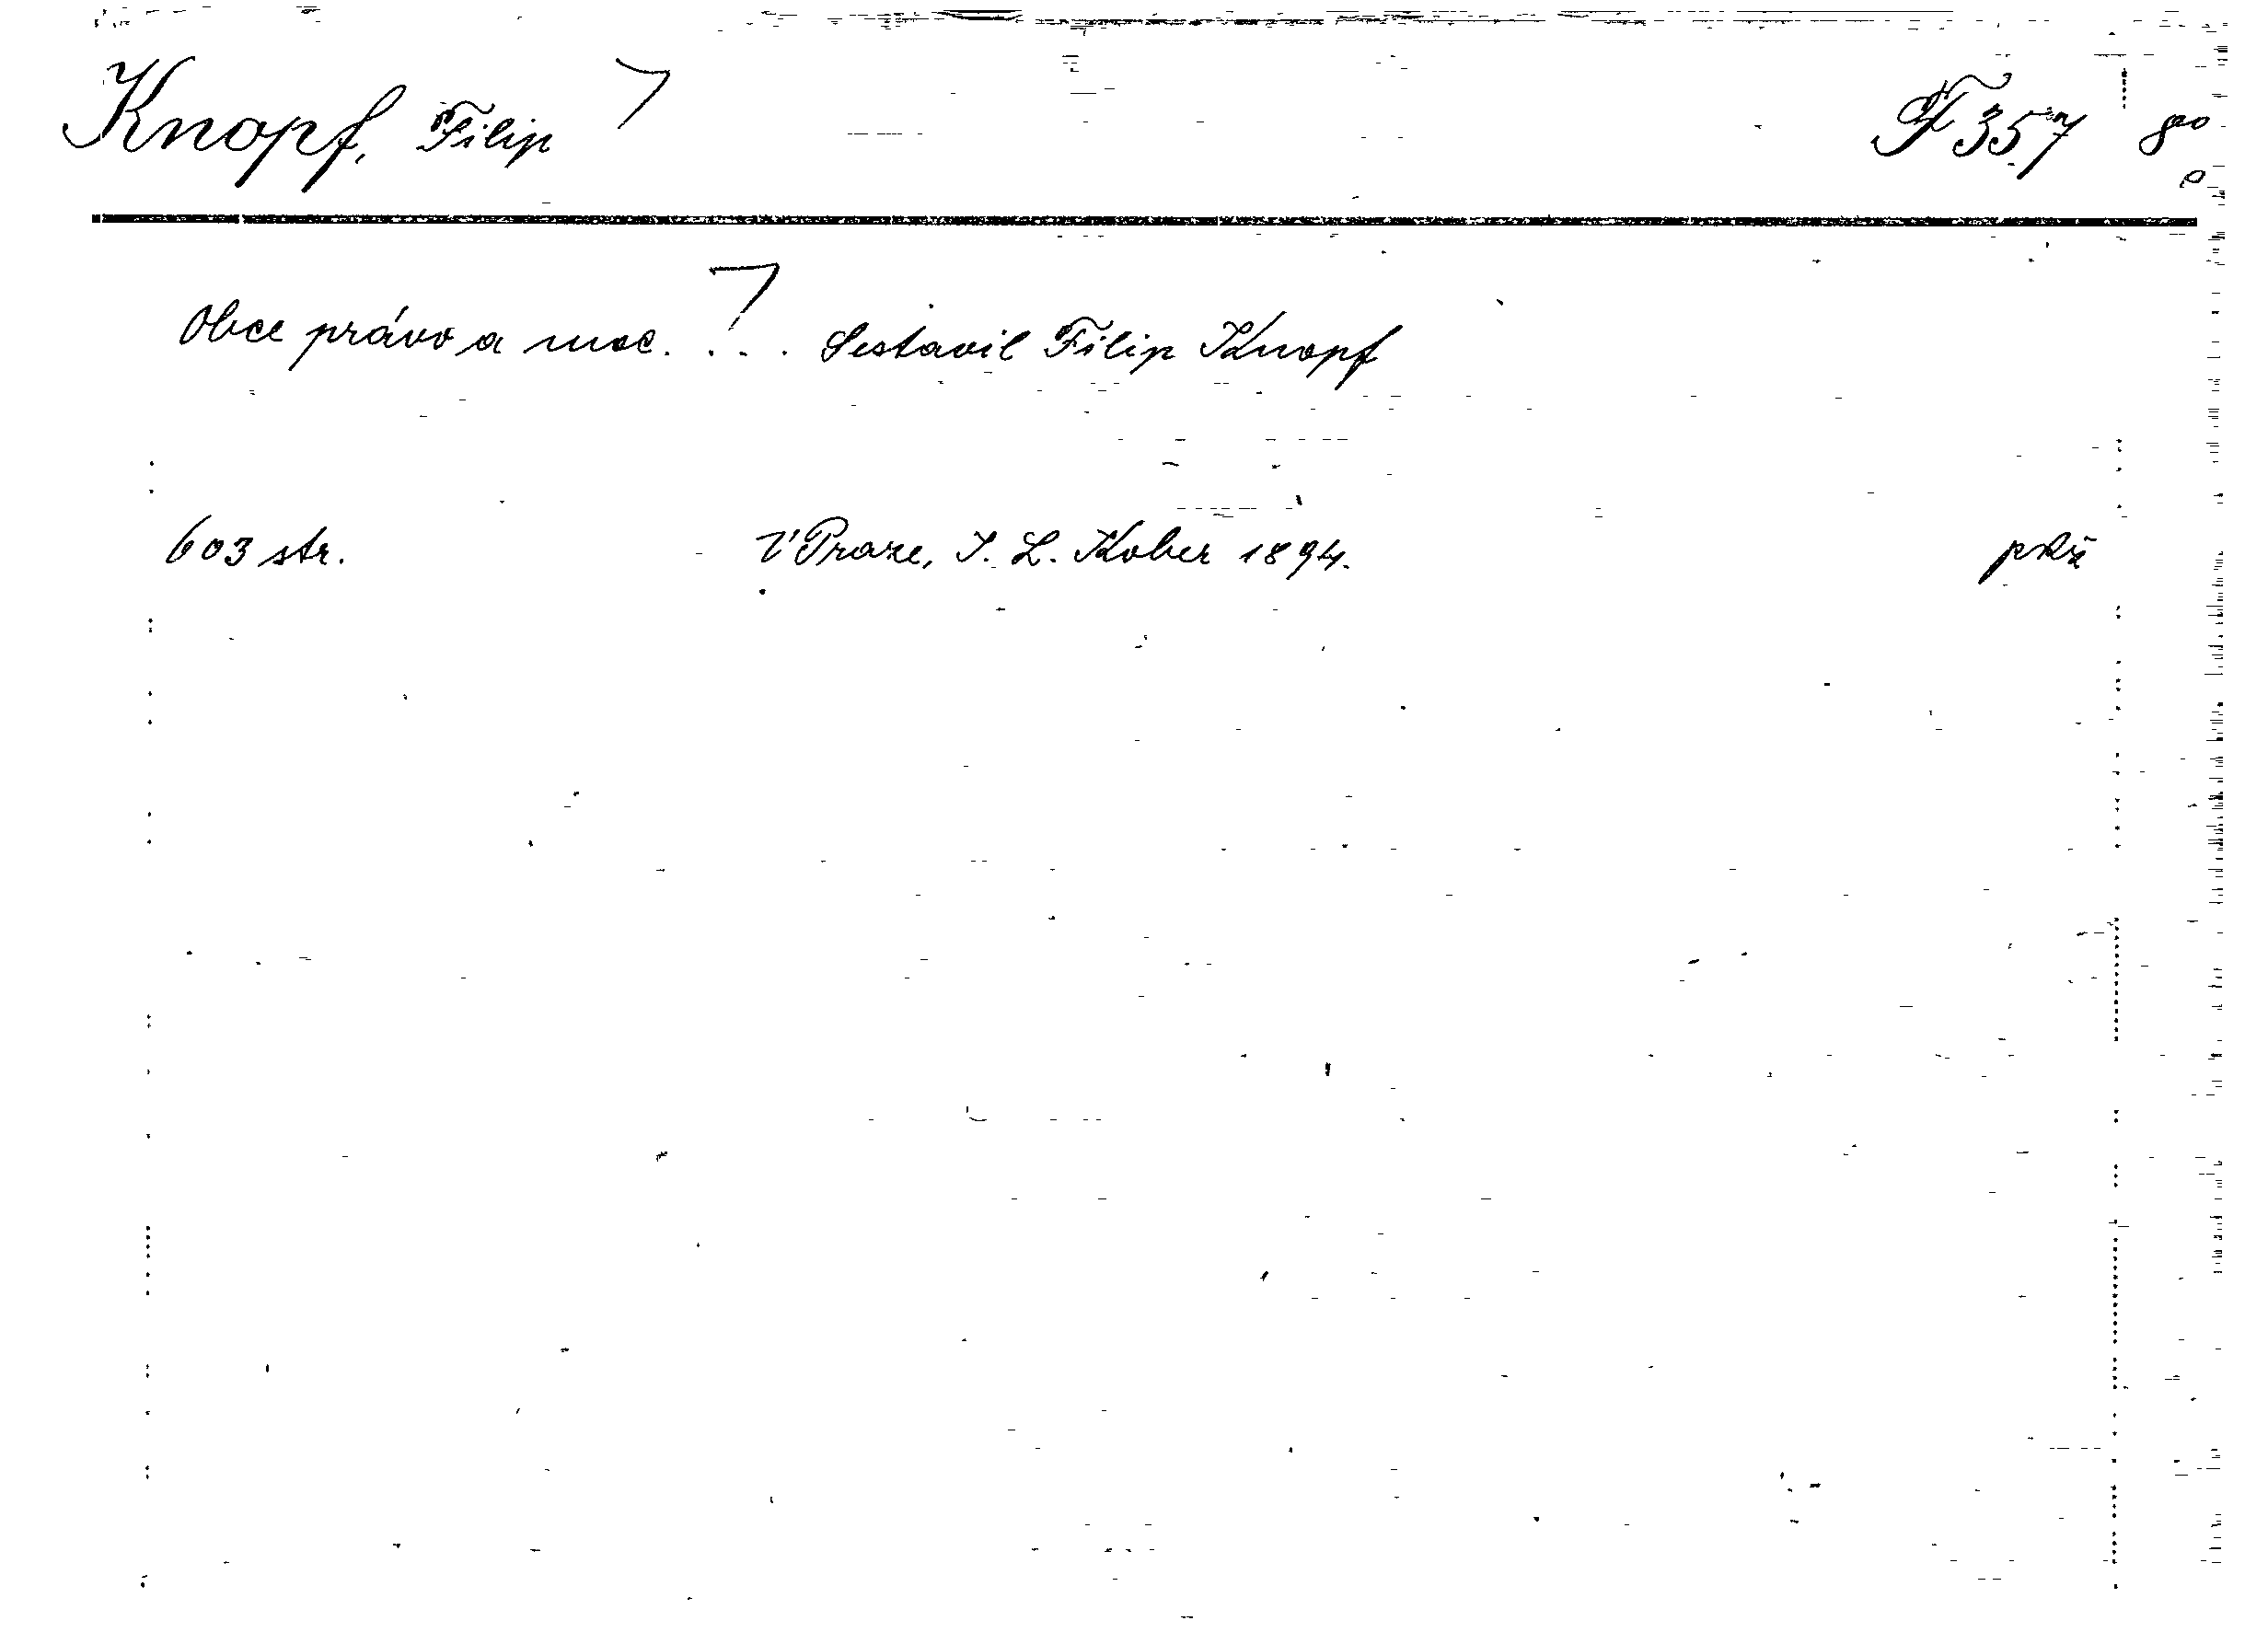 Knopf, Filip F 357 8°
Obce právo a moc. . . . Sestavil Filip Knopf
603 str. V Praze, I. L. Kober 1894.